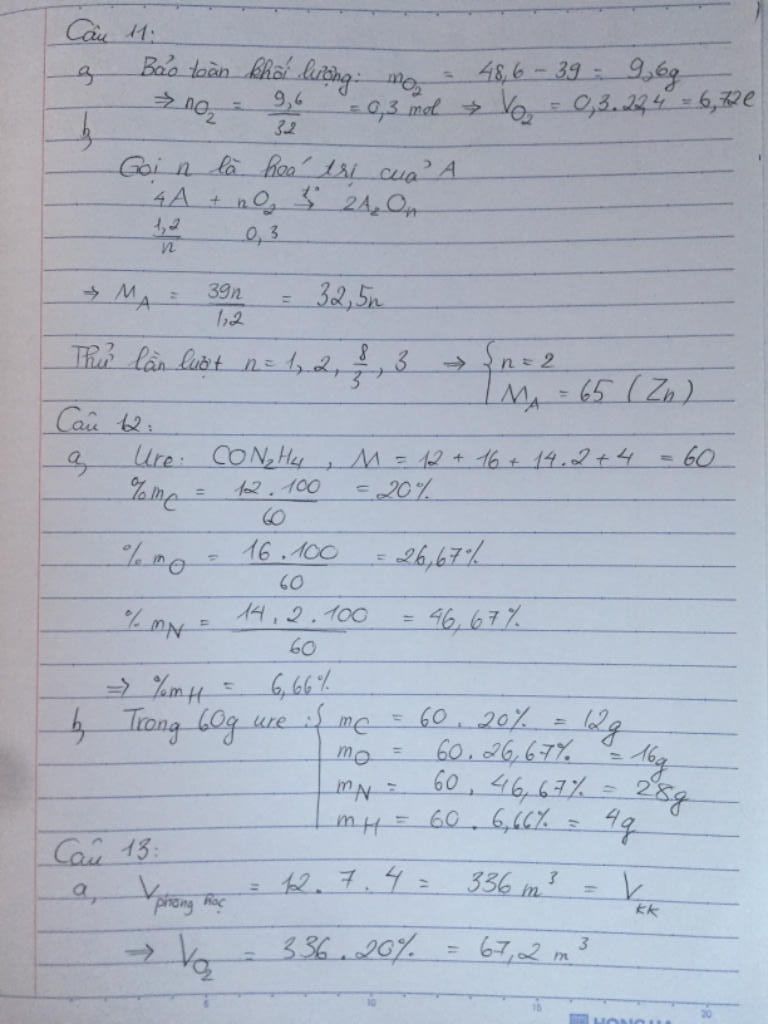 Câu 11:
a, Bảo toàn khối lượng: mO2 = 48,6 - 39 = 9,6g
=> nO2 = 9,6/32 = 0,3 mol => VO2 = 0,3.22,4 = 6,72l
b,
Gọi n là hoá trị của A
4A + nO2 t°→ 2A2On
1,2/n 0,3
=> MA = 39n/1,2 = 32,5n
Thử lần lượt n = 1, 2, 8/3, 3 => { n = 2
MA = 65 (Zn)
Câu 12:
a, Ure: CON2H4, M = 12 + 16 + 14.2 + 4 = 60
%mC = 12.100/60 = 20%
%mO = 16.100/60 = 26,67%
%mN = 14.2.100/60 = 46,67%
=> %mH = 6,66%
b, Trong 60g ure: { mC = 60.20% = 12g
mO = 60.26,67% = 16g
mN = 60.46,67% = 28g
mH = 60.6,66% = 4g
Câu 13:
a, Vphòng học = 12.7.4 = 336 m³ = Vkk
=> VO2 = 336.20% = 67,2 m³
5 10 15 20